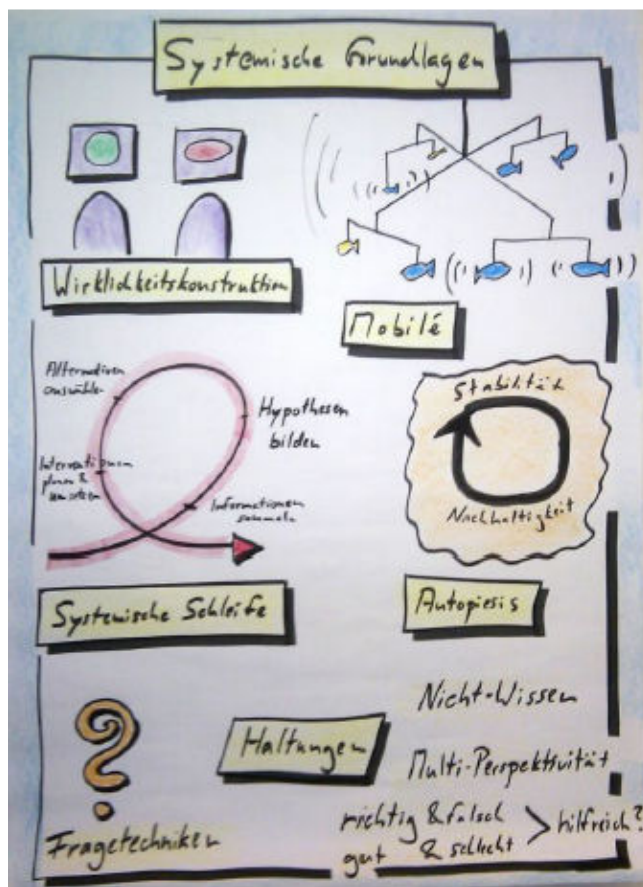 Systemische Grundlagen
Wirklichkeitskonstruktion
Mobilé
Alternativen
auswählen
Hypothesen
bilden
Interventionen
planen &
umsetzen
Informationen
sammeln
Stabilität
Nachhaltigkeit
Systemische Schleife
Autopiesis
Fragetechniken
Haltungen
Nicht-Wissen
Multi-Perspektivität
richtig & falsch
gut & schlecht
> hilfreich?